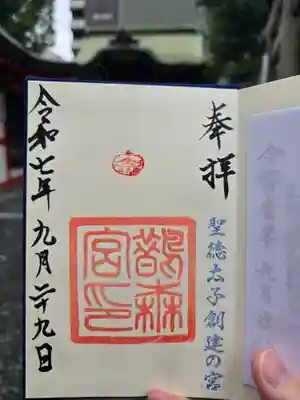 奉拝
聖徳太子創建の宮
鵲森
宮印
令和七年九月二十九日